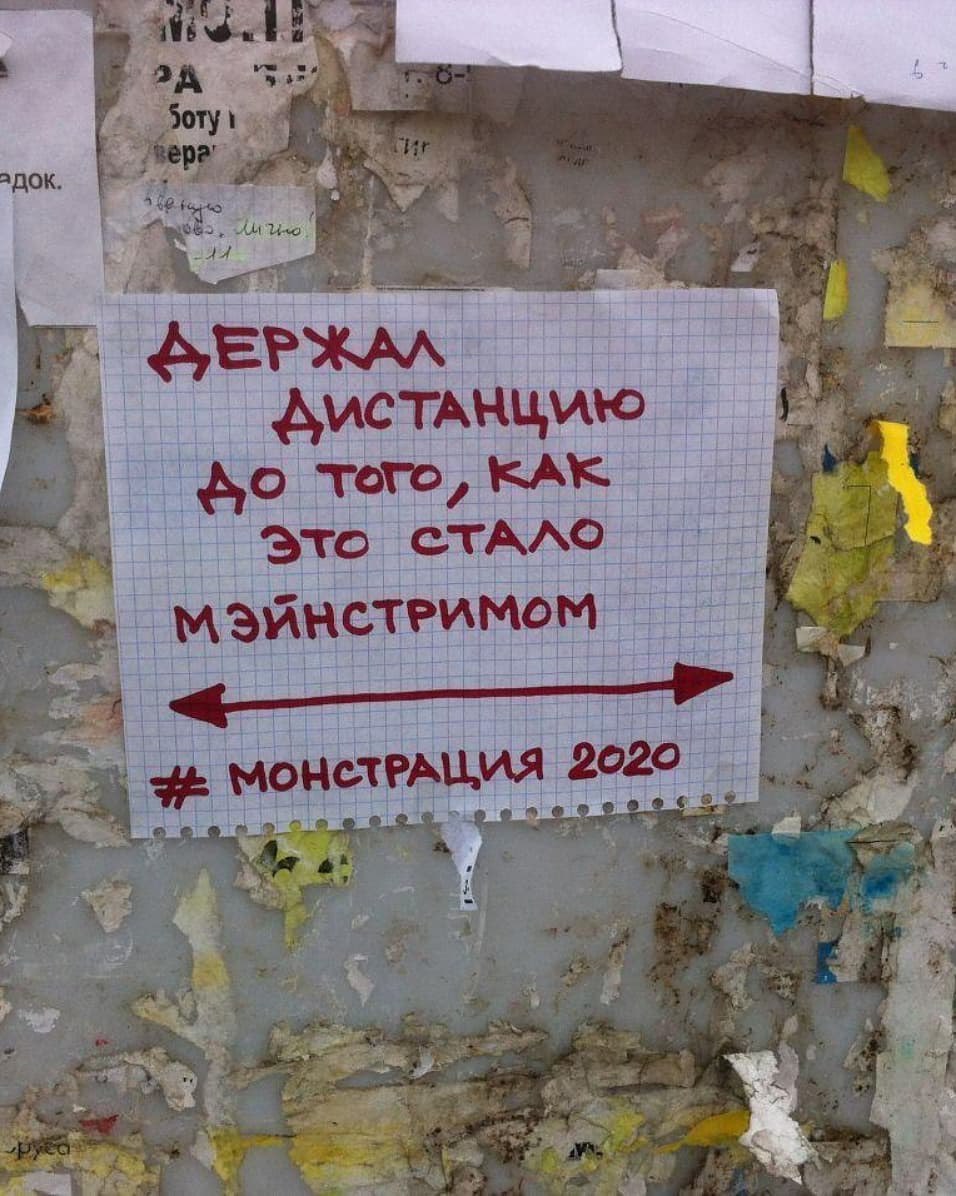 РА
боту
адок.
Лично!
ДЕРЖАЛ
ДИСТАНЦИЮ
ДО ТОГО, КАК
ЭТО СТАЛО
МЭЙНСТРИМОМ
# МОНСТРАЦИЯ 2020